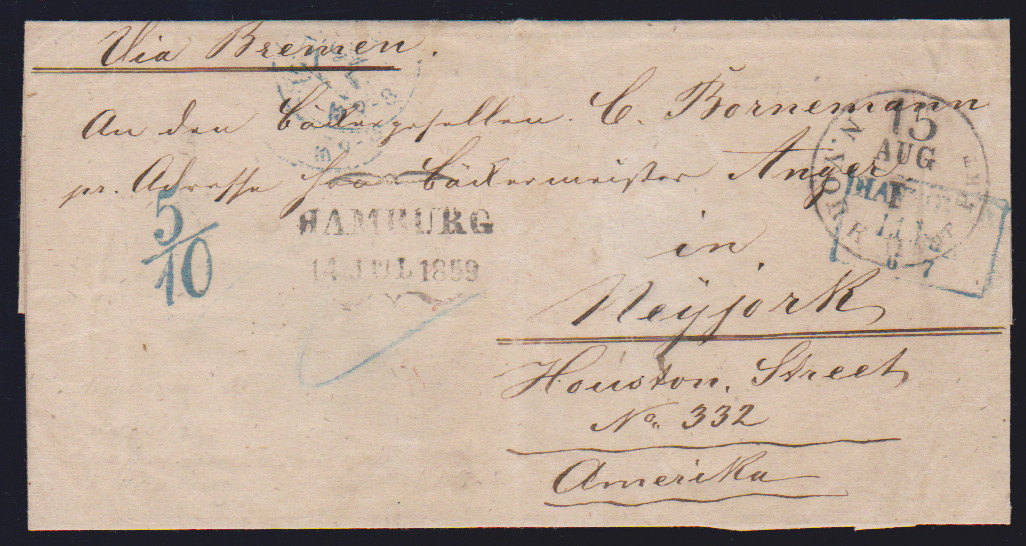 Via Bremen.
An den Bäckergesellen C. Bornemann
pr. Adresse Bäckermeister Anger
in
Neÿjork
Houston. Street
No. 332
Amerika
5/10
HAMBURG
14 JUL 1859
N. YORK
15
AUG
PKT
6 7